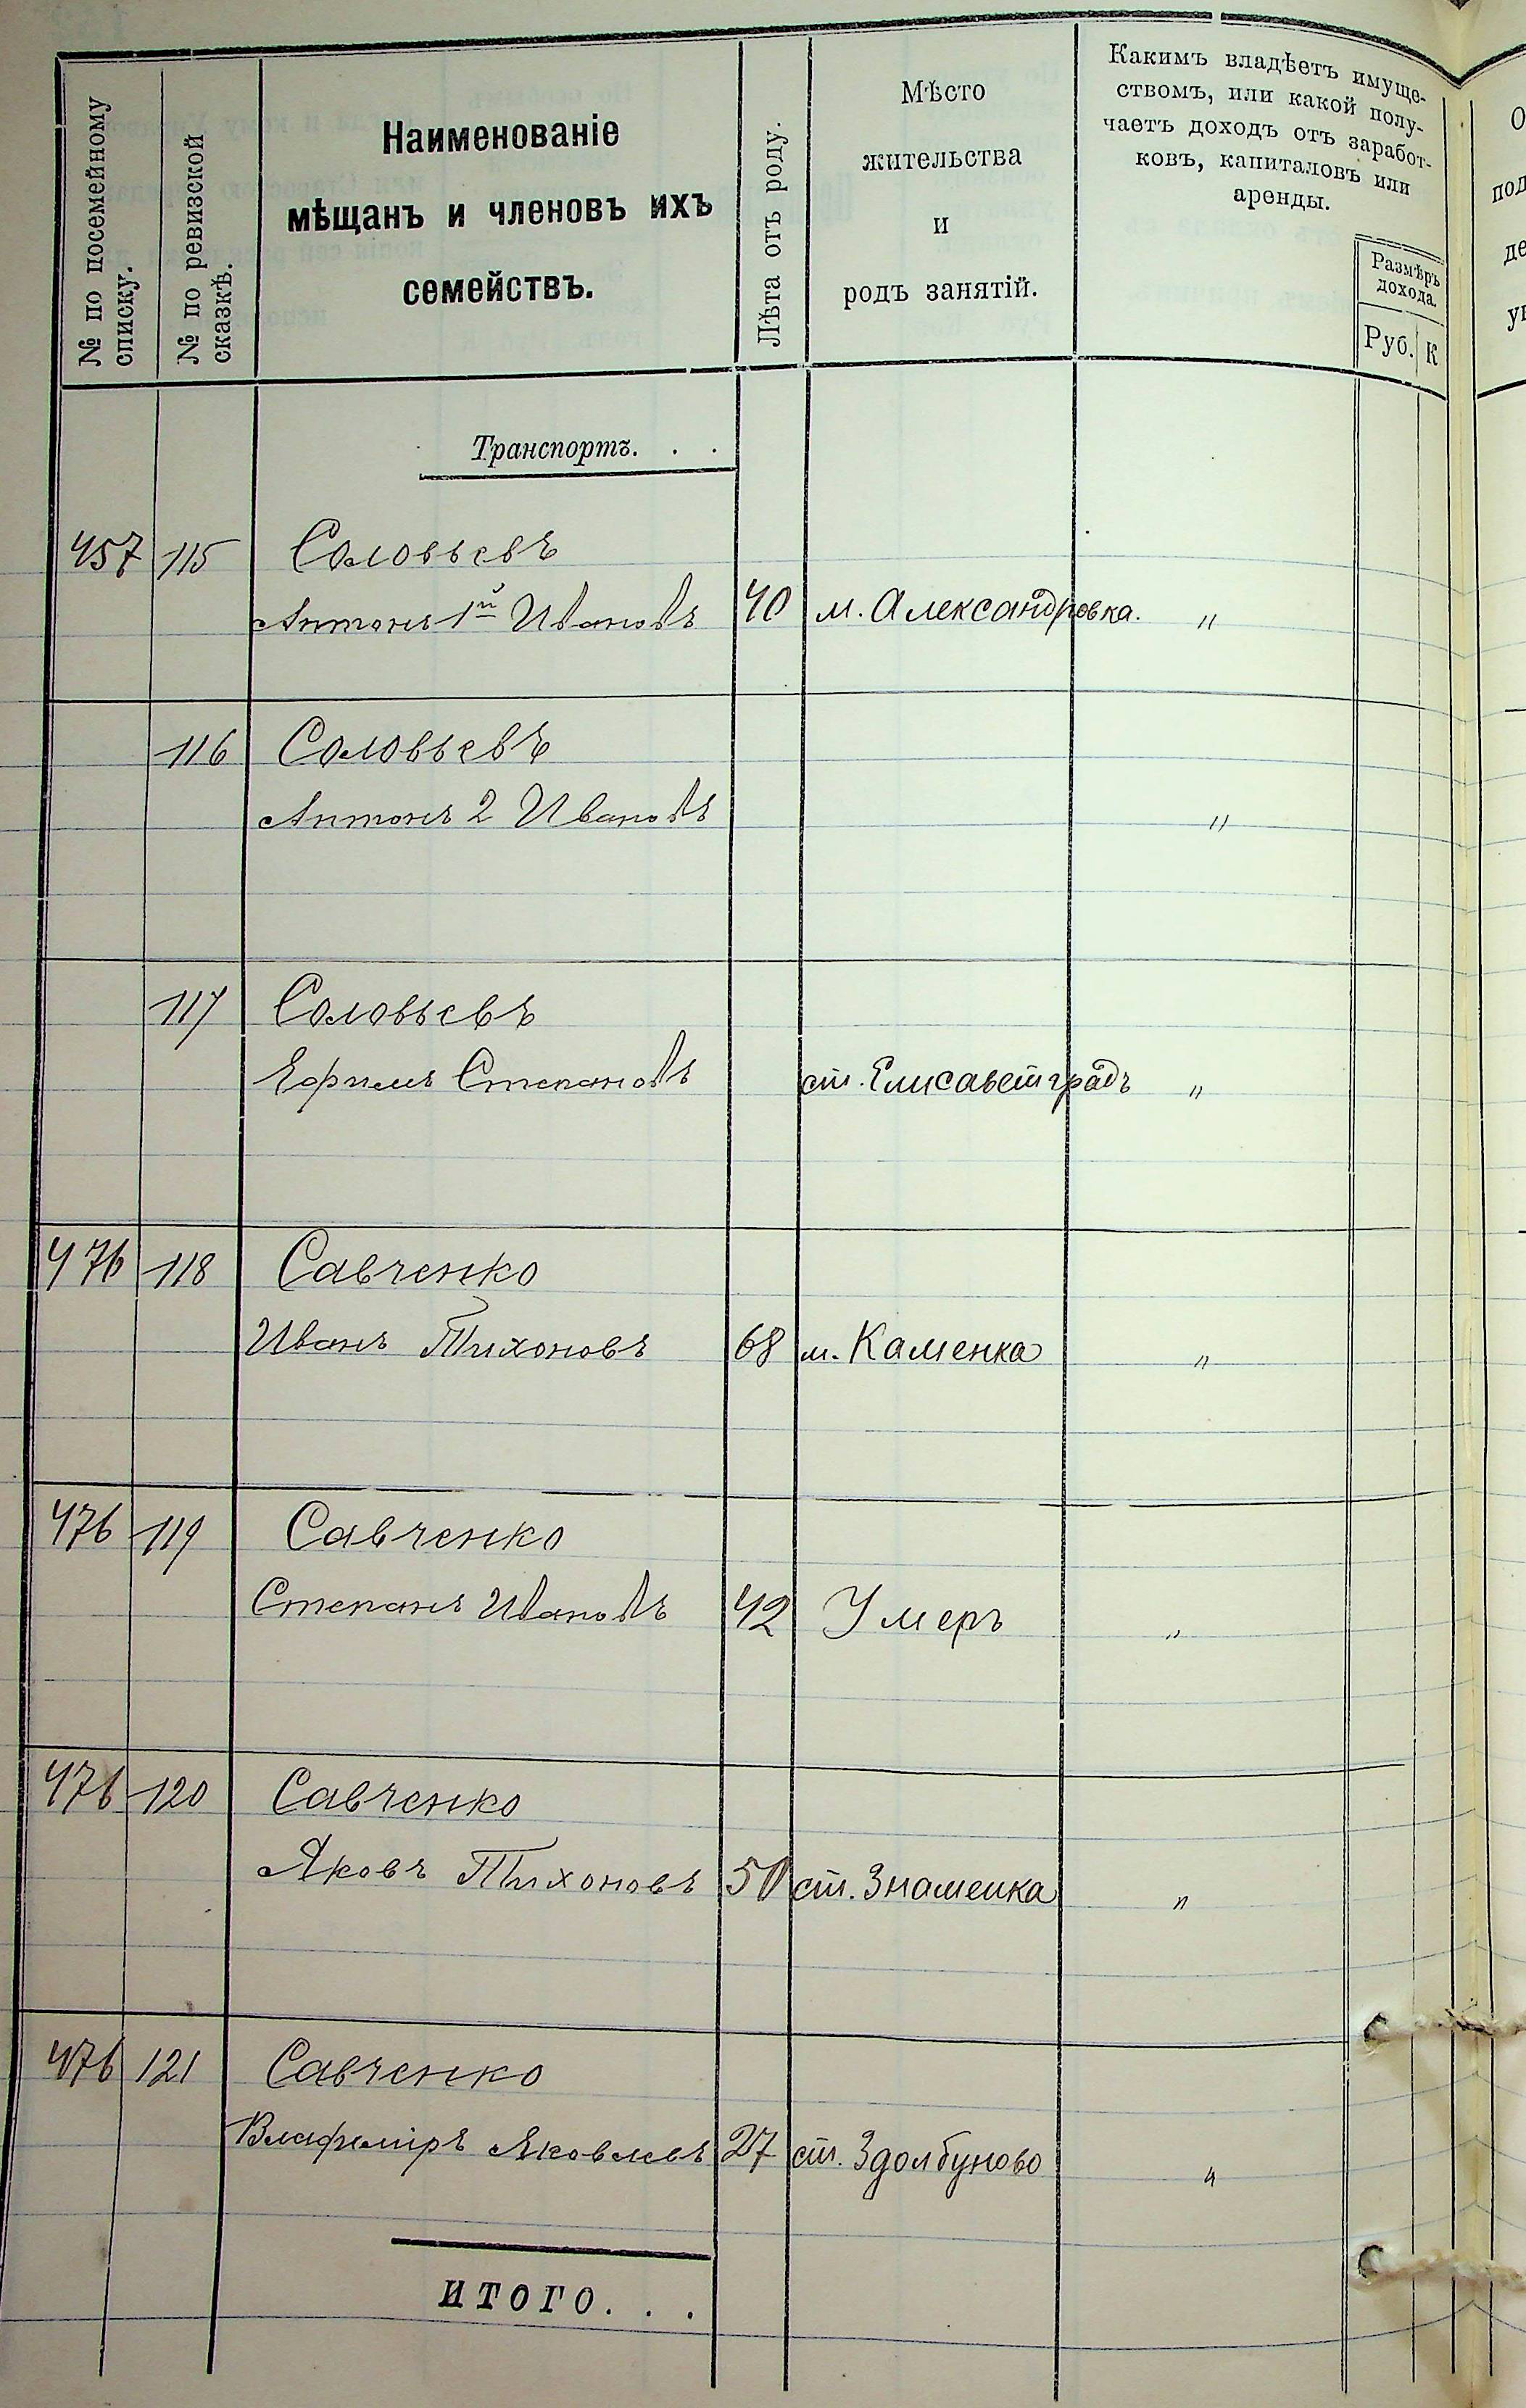 № по посемейному
списку.
№ по ревизской
сказкѣ.
Наименованіе
мѣщанъ и членовъ ихъ
семействъ.
Лѣта отъ роду.
Мѣсто
жительства
и
родъ занятій.
Какимъ владѣетъ имуще-
ствомъ, или какой полу-
чаетъ доходъ отъ заработ-
ковъ, капиталовъ или
аренды.
Размѣръ
дохода.
Руб. К
Транспортъ. . .
457 115 Соловьевъ
Антонъ 1й Ивановъ 40 м. Александровка. "
116 Соловьевъ
Антонъ 2 Ивановъ "
117 Соловьевъ
Ефимъ Степановъ ст. Елисаветградъ "
476 118 Савченко
Иванъ Тихоновъ 68 м. Каменка "
476 119 Савченко
Степанъ Ивановъ 42 Умеръ "
476 120 Савченко
Яковъ Тихоновъ 50 ст. Знаменка "
476 121 Савченко
Владиміръ Яковлевъ 27 ст. Здолбуново "
ИТОГО. . .